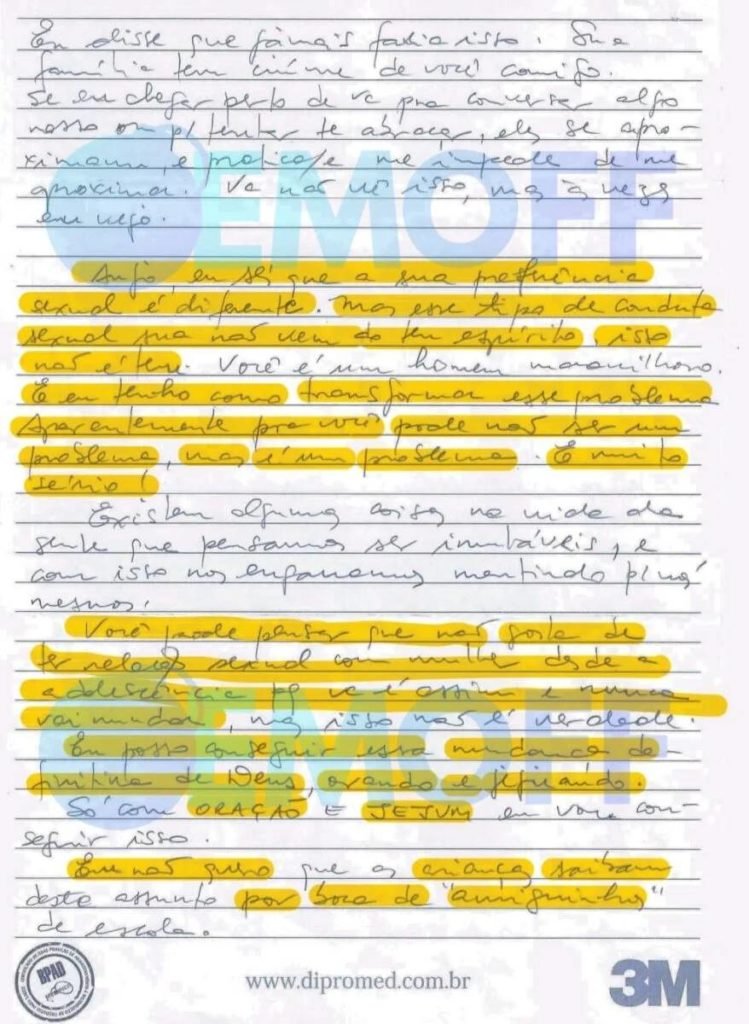 Eu disse que jámais faria isso. Sua
família tem ciúme de você comigo.
Se eu chegar perto de vc pra conversar algo
nosso ou p/ tentar te abraçar, eles se apro-
ximam, e pratica/e me impede de me
aproximar. Vc não vê isso, mas às vezes
eu vejo.
Anjo, eu sei que a sua preferência
sexual é diferente. Mas esse tipo de conduta
sexual sua não vem do teu espírito, isso
não é teu. Você é um homem maravilhoso.
E eu tenho como transformar esse problema
Aparentemente pra você pode não ser um
problema, mas é um problema. E muito
sério!
Existem algumas coisas na vida da
gente que pensamos ser imutáveis, e
com isso nos enganamos mentindo p/ nós
mesmos.
Você pode pensar que não gosta de
ter relação sexual com mulher desde a
adolescência pq vc é assim e nunca
vai mudar, mas isso não é verdade.
Eu posso conseguir essa mudança de-
finitiva de Deus, orando e jejuando.
Só com ORAÇÃO E JEJUM eu vou con-
seguir isso.
Eu não quero que as crianças saibam
deste assunto por boca de "amiguinhos"
de escola.
EMOFF
EMOFF
BPAD
www.dipromed.com.br
3M